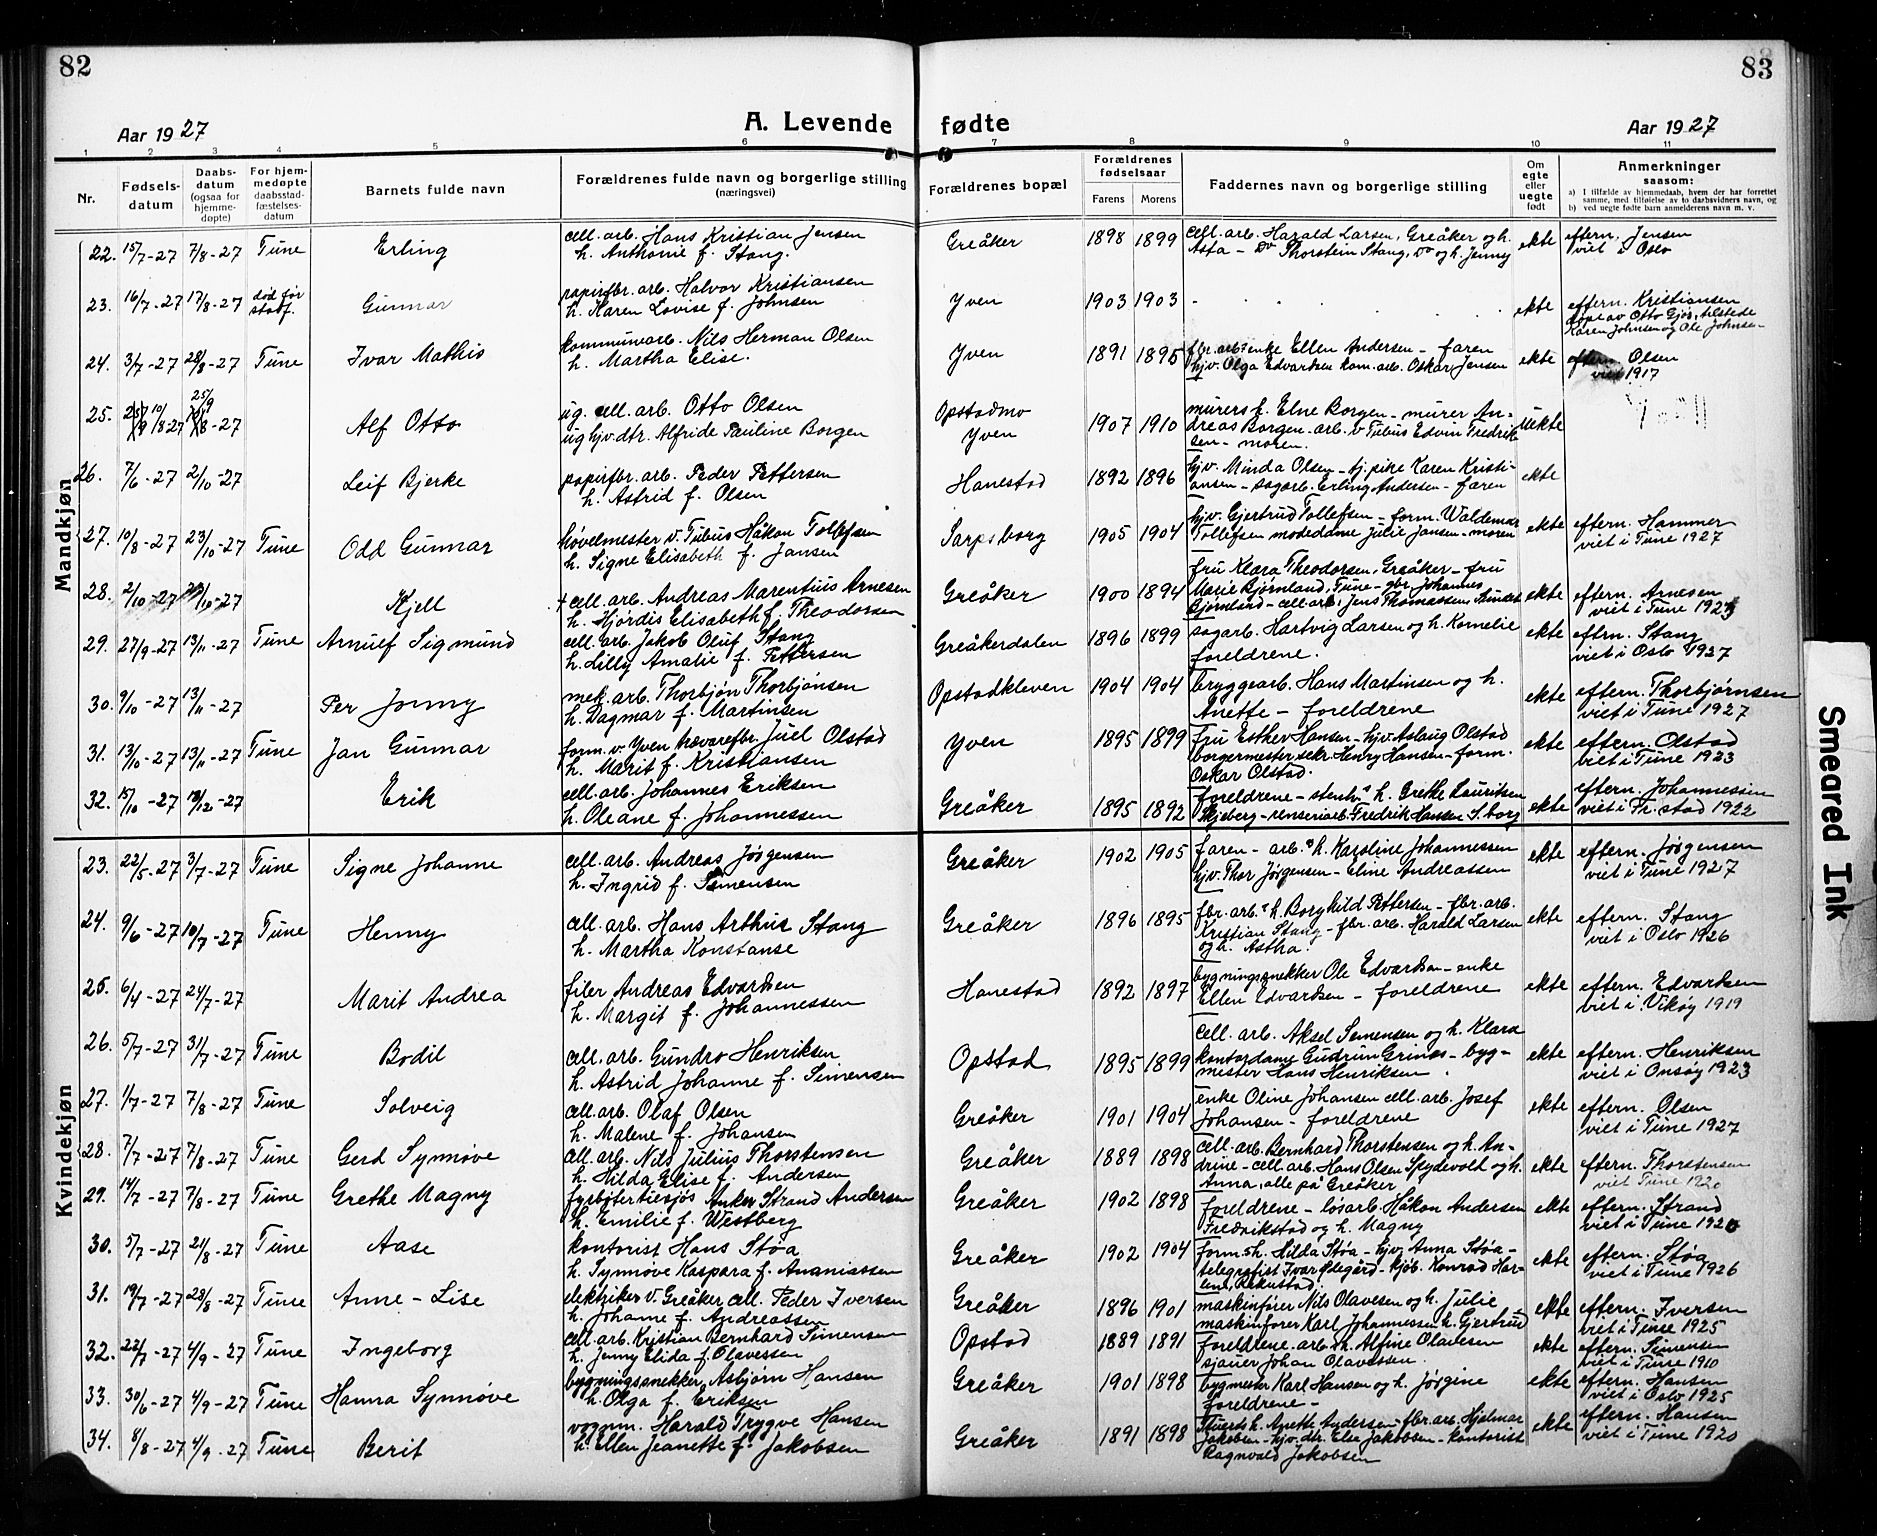 82
83
Aar 1927
A. Levende fødte
Aar 1927
1 2 3 4 5 6 7 8 9 10 11
Nr.
Fødsels-
datum
Daabs-
datum
(ogsaa for
hjemme-
døpte)
For hjem-
medøpte
daabsstad-
fæstelses-
datum
Barnets fulde navn
Forældrenes fulde navn og borgerlige stilling
(næringsvei)
Forældrenes bopæl
Forældrenes
fødselsaar
Farens Morens
Faddernes navn og borgerlige stilling
Om
egte
eller
uegte
født
Anmerkninger
saasom:
a) I tilfælde av hjemmedaab, hvem der har forrettet
samme, med tilføielse av to daabsvidners navn, og
b) ved uegte fødte barn anmelderens navn m. v.
Mandkjøn
22. 15/7-27 7/8-27 Tune Erling
cell. arb. Hans Kristian Jensen
h. Anthonie f. Stang.
Greåker 1898 1899
cell. arb. Harald Larsen, Greåker og h.
Asta - Do Thorstein Stang, Do og h. Jenny
ekte
eftern. Jensen
viet i Oslo
23. 16/7-27 17/8-27
død før
stadf.
Gunnar
papirfbr. arb. Halvor Kristiansen
h. Karen Lovise f. Johnsen
Yven 1903 1903 -
ekte
eftern. Kristiansen
døpt av Otto Gjøs, tilstede
Karen Johnsen og Ole Johnse-
24. 3/7-27 28/8-27 Tune Ivar Mathis
kommunearb. Nils Herman Olsen
h. Martha Elise.
Yven 1891 1895
fbr. arb. enke Ellen Andersen - faren
hjv. Olga Edvardsen kom. arb. Oskar Jensen
ekte
eftern. Olsen
viet 1917
25. 10/8-27 25/9-27 Alf Otto
ug. cell. arb. Otto Olsen
ug hjv. dtr. Alfride Pauline Borgen
Opstadmo
Yven
1907 1910
murers h. Elne Borgen - murer An-
dreas Borgen - arb. v Tubus Edvin Fredrik-
sen - moren.
uekte
26. 7/6-27 2/10-27 Leif Bjerke
papirfbr. arb. Peder Pettersen
h. Astrid f. Olsen
Hanestad 1892 1896
hjv. Minda Olsen - tj. pike Karen Kristi-
ansen - sagarb. Erling Andersen - faren
ekte
27. 10/8-27 23/10-27 Tune Odd Gunnar
høvelmester v. Tubus Håkon Tollefsen
h. Signe Elisabeth f. Jansen
Sarpsborg 1905 1904
hjv. Gjertrud Tollefsen - form. Waldemar
Tollefsen modedame Julie Jansen - moren
ekte
eftern. Hammer
viet i Tune 1927
28. 2/10-27 /10-27 Kjell
+ cell. arb. Andreas Marentius Arnesen
h. Hjördis Elisabeth f. Theodorsen
Greåker 1900 1894
fru Klara Theodorsen, Greåker - fru
Marie Bjørnland, Tune - gbr. Johannes
Bjørnland - cell. arb. Jens Thomassen,
ekte
eftern. Arnesen
viet i Tune 1923
29. 27/9-27 13/11-27 Tune Arnulf Sigmund
cell. arb. Jakob Oluf Stang
h. Lilly Amalie f. Pettersen
Greåkerdalen 1896 1899
sagarb. Hartvig Larsen og h. Kornelie
foreldrene.
ekte
eftern. Stang
viet i Oslo 1927
30. 9/10-27 13/11-27 Per Jonny
mek. arb. Thorbjön Thorbjönsen
h. Dagmar f. Martinsen
Opstadkleven 1904 1904
bryggearb. Hans Martinsen og h.
Anette - foreldrene
ekte
eftern. Thorbjørnsen
viet i Tune 1927
31. 13/10-27 13/11-27 Tune Jan Gunnar
form. v. Yven trævarefbr. Juel Olstad
h. Marit f. Kristiansen
Yven 1895 1899
fru Esther Hansen - hjv. Aslaug Olstad
borgermester sekr. Henry Hansen - form.
Oskar Olstad.
ekte
eftern. Olstad
viet i Tune 1923
32. 15/10-27 /12-27 Erik
cell. arb. Johannes Eriksen
h. Oleane f. Johannessen
Greåker 1895 1892
foreldrene - stenh. h. Grethe Lauritsen
Skjeberg - renseriarb. Fredrik Hansen S. borg
ekte
eftern. Johannessen
viet i Fr. stad 1922
Kvindekjøn
23. 22/5-27 3/7-27 Tune Signe Johanne
cell. arb. Andreas Jørgensen
h. Ingrid f. Simensen
Greåker 1902 1905
faren - arb. h. Karoline Johannessen
hjv. Thor Jørgensen - Eline Andreassen
ekte
eftern. Jørgensen
viet i Tune 1927
24. 9/6-27 10/7-27 Tune Henny
cell. arb. Hans Arthur Stang
h. Martha Konstanse
Greåker 1896 1895
fbr. arb. h. Borghild Pettersen - fbr. arb.
Kristian Stang - fbr. arb. Harald Larsen
og h. Astha.
ekte
eftern. Stang
viet i Oslo 1926
25. 6/4-27 24/7-27 Marit Andrea
filer Andreas Edvardsen
h. Margit f. Johannessen
Hanestad 1892 1897
bygningssnekker Ole Edvardsen - enke
Ellen Edvardsen - foreldrene
ekte
eftern. Edvardsen
viet i Vikøy 1919
26. 5/7-27 31/7-27 Tune Bodil
cell. arb. Gundro Henriksen
h. Astrid Johanne f. Simensen
Opstad 1895 1899
cell. arb. Aksel Semensen og h. Klara
kontordame Gudrun Grinæs - byg-
mester Hans Henriksen.
ekte
eftern. Henriksen
viet i Onsøy 1923
27. 1/7-27 7/8-27 Tune Solveig
cell. arb. Olaf Olsen
h. Malene f. Johansen
Greåker 1901 1904
enke Oline Johansen cell. arb. Josef
Johansen - foreldrene
ekte
eftern. Olsen
viet i Tune 1927
28. 7/7-27 7/8-27 Tune Gerd Synnøve
cell. arb. Nils Julius Thorstensen
h. Hilda Elise f. Andersen
Greåker 1889 1898
cell. arb. Bernhard Thorstensen og h. An-
drine - cell. arb. Hans Olsen Spydevold og h.
Anna, alle på Greåker
ekte
eftern. Thorstensen
viet Tune 1920
29. 14/7-27 7/8-27 Tune Grethe Magny
fyrbøter tilsjøs Anker Strand Andersen
h. Emilie f. Westberg
Greåker 1902 1898
foreldrene - løsarb. Håkon Andersen
Fredrikstad og h. Magny
ekte
eftern. Strand
viet i Tune 1920
30. 5/7-27 21/8-27 Tune Aase
kontorist Hans Støa
h. Synnøve Kaspara f. Ananiassen
Greåker 1902 1904
form. h. Hilda Støa - hjv. Anna Støa -
telegrafist Ivar Ødegård - kjøb. Konrad Har-
lem, Rakkestad.
ekte
eftern. Støa
viet i Tune 1926
31. 19/7-27 28/8-27 Tune Anne - Lise
elektriker v. Greåker cell. Peder Iversen
h. Johanne f. Andreassen
Greåker 1896 1901
maskinfører Nils Olavesen og h. Julie
maskinfører Karl Johannessen h. Gjertrud
ekte
eftern. Iversen
viet i Tune 1925
32. 22/7-27 4/9-27 Tune Ingeborg
cell. arb. Kristian Bernhard Simensen
h. Jenny Elida f. Olavessen
Opstad 1889 1891
foreldrene. arb. h. Alfine Olavesen
sjauer Johan Olavessen.
ekte
eftern. Simensen
viet i Tune 1910
33. 30/6-27 4/9-27 Tune Hanna Synnøve
bygningssnekker, Asbjørn Hansen
h. Olga f. Eriksen
Greåker 1901 1898
bygmester Karl Hansen og h. Jørgine
foreldrene -
ekte
eftern. Hansen
viet i Oslo 1925
34. 8/8-27 4/9-27 Tune Berit
vognm. Harald Trygve Hansen
h. Ellen Jeanette f. Jakobsen
Greåker 1891 1898
h. Anette Andersen - fbr. arb. Hjalmar
Jakobsen - hjv. dtr. Else Jakobsen - kontorist
Ragnvald Jakobsen
ekte
eftern. Hansen
viet i Tune 1920
Smeared Ink